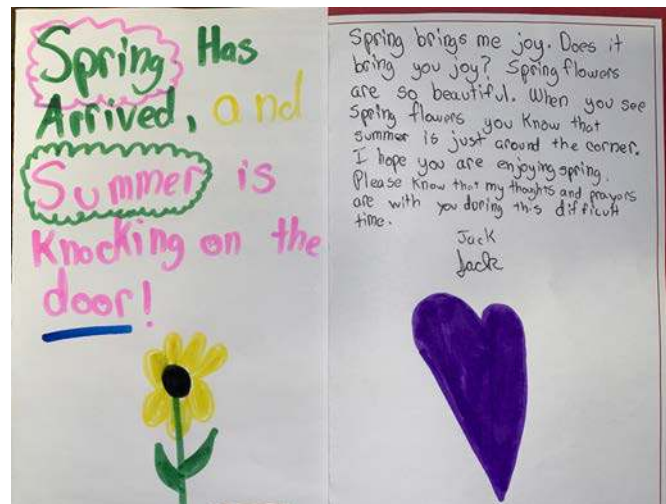 Spring Has
Arrived, and
Summer is
Knocking on the
door!
Spring brings me joy. Does it
bring you joy? Spring flowers
are so beautiful. When you see
Spring flowers you know that
summer is just around the corner.
I hope you are enjoying spring.
Please know that my thoughts and prayors
are with you during this difficult
time.
Jack
Jack